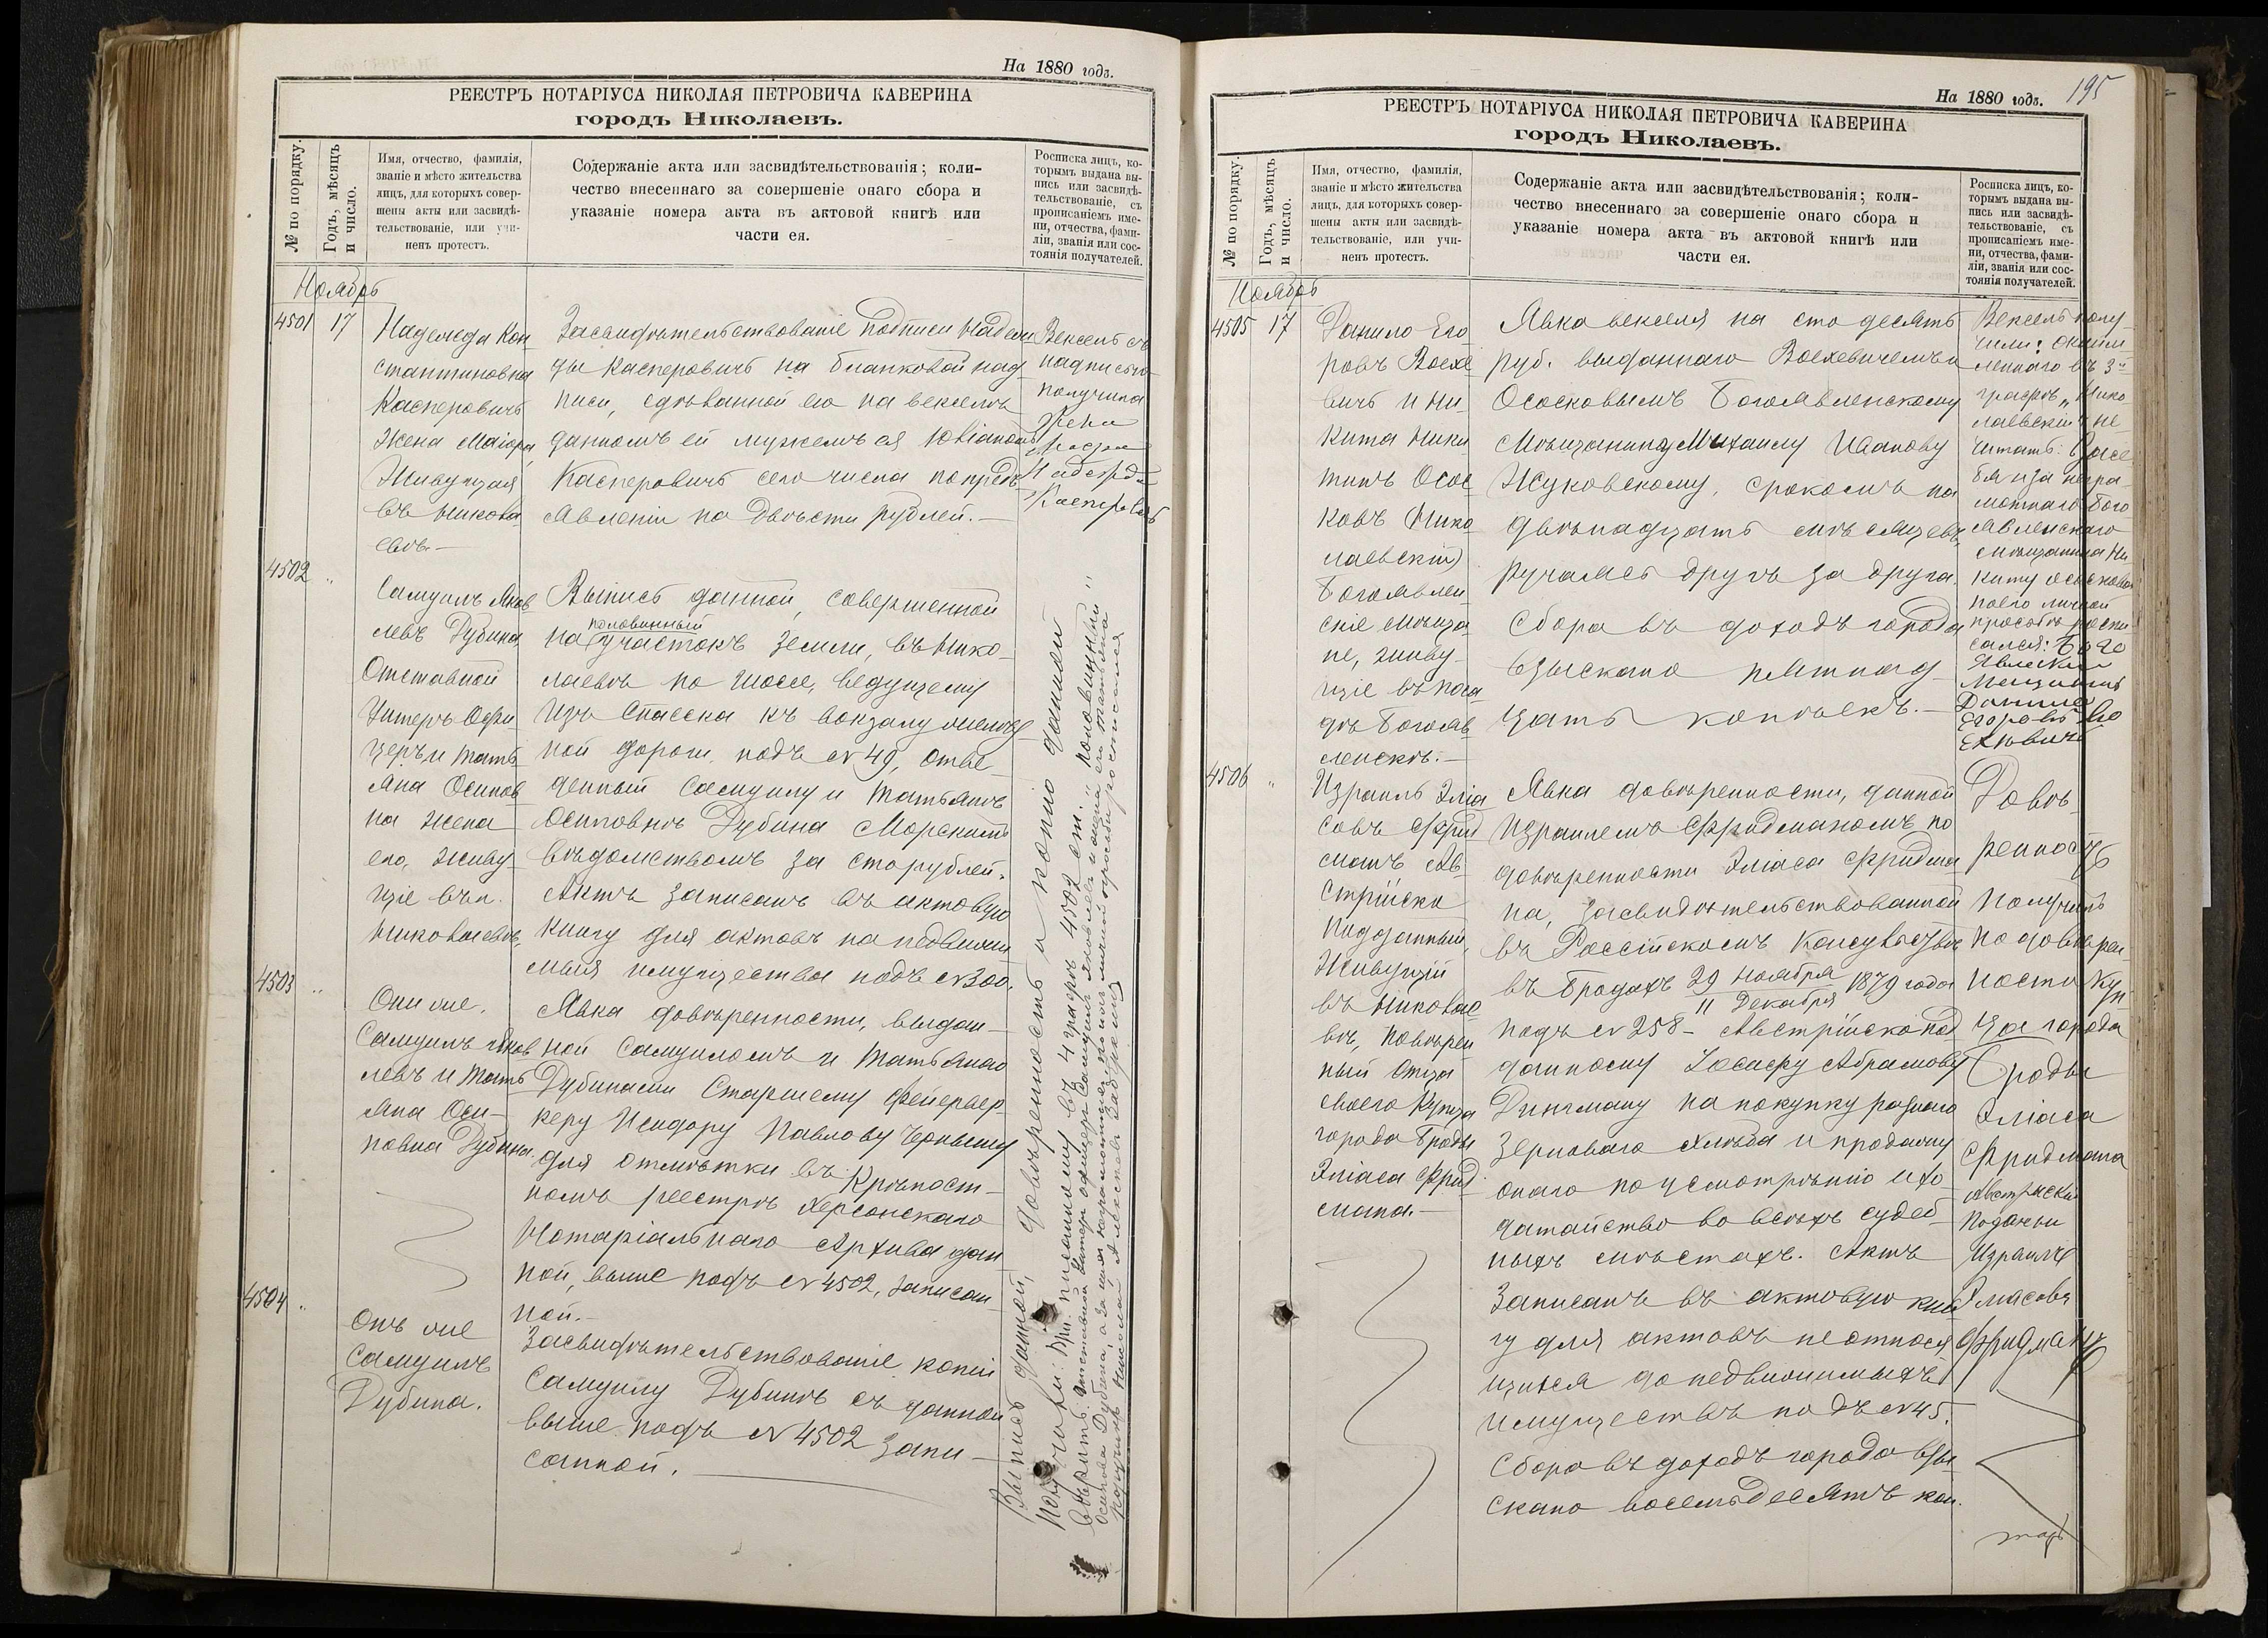 На 1880 годъ.
РЕЕСТРЪ НОТАРІУСА НИКОЛАЯ ПЕТРОВИЧА КАВЕРИНА
городъ Николаевъ.
№ по порядку.
Годъ, мѣсяцъ
и число.
Имя, отчество, фамилія,
званіе и мѣсто жительства
лицъ, для которыхъ совер-
шены акты или засвидѣ-
тельствованіе, или учи-
ненъ протестъ.
Содержаніе акта или засвидѣтельствованія; коли-
чество внесеннаго за совершеніе онаго сбора и
указаніе номера акта въ актовой книгѣ или
части ея.
Росписка лицъ, ко-
торымъ выдана вы-
пись или засвидѣ-
тельствованіе, съ
прописаніемъ име-
ни, отчества, фами-
ліи, званія или сос-
тоянія получателей.
Ноябрь
4501 17
Надежда Кон
стантиновна
Касперовичъ
Жена Маіора,
Живущая
въ Никола
евѣ.—
Засвидѣтельствованіе подписи Надеж
ды Касперовичъ на бланковой над
писи, сдѣланной ею на векселѣ
данномъ ей мужемъ ея Юліаномъ
Касперовичъ сего числа по предъ
явленіи на двѣсти рублей.—
Вексель съ
надписью
получила
Жена
Маіора
Надежда
Касперовичъ
4502 "
Самуилъ Яков
левъ Дубина,
Отставной
Унтеръ Офи
церъ и Тать
яна Осипов
на жена
его, живу
щіе въ г.
Николаевѣ,
Выпись данной, совершенной
половинный
на участокъ земли, въ Нико
лаевѣ по шоссе, ведущему
изъ Спасска къ вокзалу желѣз
ной дороги, подъ № 49, отве
денный Самуилу и Татьянѣ
Осиповнѣ Дубина Морскимъ
вѣдомствомъ за сто рублей.
Актъ записанъ въ актовую
книгу для актовъ на недвижи
мыя имущества подъ № 300.
4503 "
Они же.
Самуилъ Яков
левъ и Тать
яна Оси-
повна Дубина.
Явка довѣренности, выдан—
ной Самуиломъ и Татьяною
Дубинами Старшему Фейервер
керу Исидору Павлову Чернышу
для отмѣтки въ Крѣпост—
номъ реестрѣ Херсонскаго
Нотаріальнаго Архива дан
ной, выше подъ № 4502, записан
ной.—
4504 "
Онъ же
Самуилъ
Дубина.
Засвидѣтельствованіе копіи
Самуилу Дубинѣ съ данной
выше подъ № 4502 запи—
санной.
Выпись данной, довѣренность и копію данной
получили: При писанному въ 4 графѣ 4502 ст: "половинный"
вѣрить. Отставной Унтеръ офицеръ Самуилъ Яковлевъ и жена его Татьяна
Осипова Дубина, а за нихъ неграмотныхъ, по ихъ личной просьбѣ росписался
Николай Алексѣевъ
На 1880 годъ.
195
РЕЕСТРЪ НОТАРІУСА НИКОЛАЯ ПЕТРОВИЧА КАВЕРИНА
городъ Николаевъ.
№ по порядку.
Годъ, мѣсяцъ
и число.
Имя, отчество, фамилія,
званіе и мѣсто жительства
лицъ, для которыхъ совер-
шены акты или засвидѣ-
тельствованіе, или учи-
ненъ протестъ.
Содержаніе акта или засвидѣтельствованія; коли-
чество внесеннаго за совершеніе онаго сбора и
указаніе номера акта въ актовой книгѣ или
части ея.
Росписка лицъ, ко-
торымъ выдана вы-
пись или засвидѣ-
тельствованіе, съ
прописаніемъ име-
ни, отчества, фами-
ліи, званія или сос-
тоянія получателей.
Ноябрь
4505 17
Данило Его
ровъ Воехе
вичъ и Ни-
кита Ники
тинъ Осос
ковъ (Нико
лаевскіи)
Богоявлен
скіе мѣща
не, живу—
щіе въ поса
дѣ Богояв
ленскѣ.—
Явка векселя на сто десять
руб. выданнаго Воехевичемъ и
Ососковымъ Богоявленскому
Мѣщанину Михаилу Иванову
Жуковскому, срокомъ на
двѣнадцать мѣсяцевъ,
ручаясь другъ за друга.
Сбора въ доходъ города
взыскано пятнад—
цать копѣекъ.—
Вексель полу
чили: оки
меннаго въ 3й
графѣ „Нико
лаевскіи“ не
читать: За се
бя и за негра
мотнаго Бого
явленскаго
мѣщанина Ни
киту Ососкова
по его личной
просьбѣ роспи
сался: Бого
явлески
Мещанинъ
Данила
Егоровъ Во
ехѣвичь
4506 "
Израиль Эліа
совъ Фрид
манъ Ав—
стрійскій
подданный,
живущій
въ Николае
вѣ, повѣрен
ный отца
своего купца
города Броды
Эліаса Фрид
мана.—
Явка довѣренности, данной
Израилемъ Фридманомъ по
довѣренности Эліаса Фридма
на, засвидѣтельствованной
въ Россійскомъ Консульствѣ
въ Бродахъ 29 Ноября 1879 года
11 Декабря
подъ № 258 — Австрійскоподданному Іосифу Абрамову
Дингману на покупку разнаго
зерноваго хлѣба и продажу
онаго по усмотрѣнію и хо
датайство во всѣхъ судеб
ныхъ мѣстахъ. Актъ
записанъ въ актовую кни
гу для актовъ неотнося
щихся до недвижимыхъ
имуществъ подъ № 45.
Сбора въ доходъ города взы
скано восемьдесятъ коп.
Довѣ
ренность
получилъ
по довѣрен
ности Куп
ца города
Броды
Эліаса
Фридмана
Австрискій
Подданы
Израиль
Эліасовъ
Фридманъ